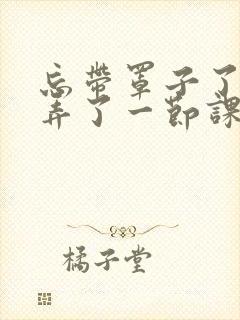 忘带罩子了
弄了一节課
橘子堂